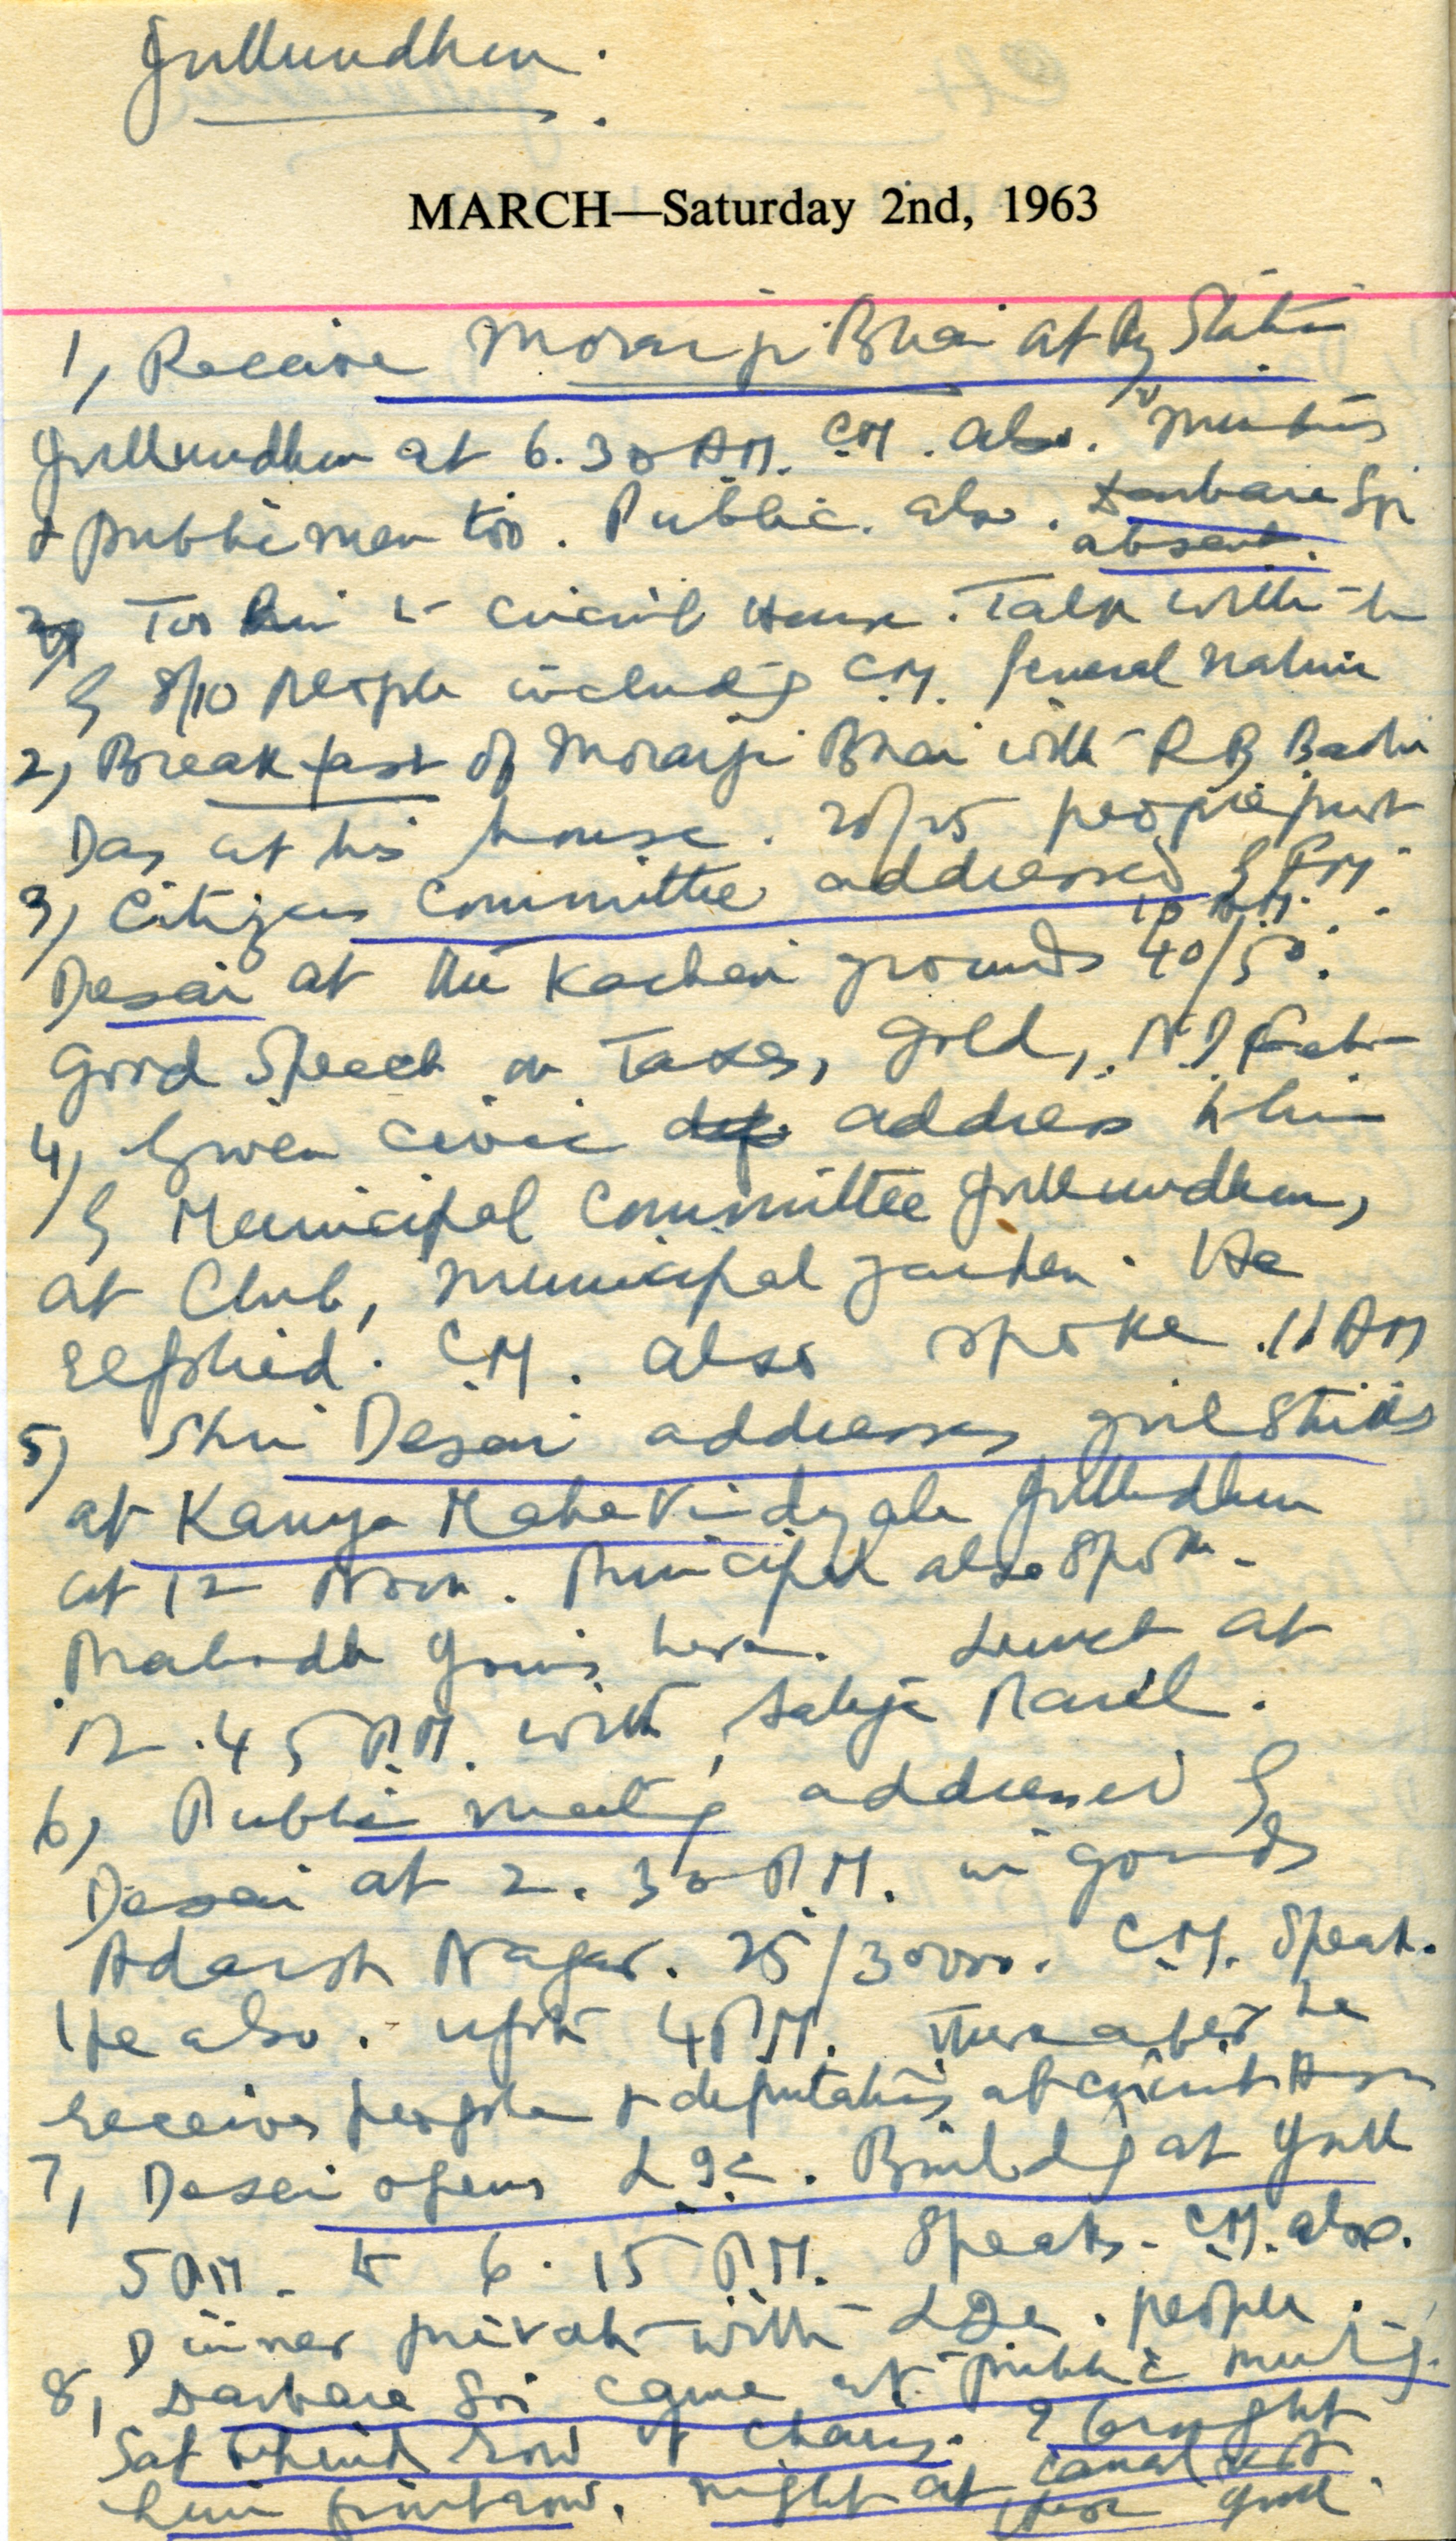 Jullundhur.
MARCH—Saturday 2nd, 1963
1, Receive Morarji Bhai at Rly Station
Jullundhur at 6.30 AM. C.M. also. Ministers
& public men too. Public also. Darbara Sri
absent.
to Circuit House. Talk with
8/10 people including C.M. General nature
2, Breakfast of Morarji Bhai with R B Badri
Das at his house. 20/25 people
3, Citizens Committee addressed
10 AM.
Desai at the Kacheri grounds 40/50.
Good Speech on Taxes, Gold,
4, Given civic address
Municipal Committee Jullundhur,
at Club, municipal garden. He
replied. C.M. also spoke. 11 AM
5, Shri Desai addresses girl
at Kanya Maha Vidyala Jullundhur
at 12 Noon. Principal also spoke.
here. Lunch at
12.45 P.M. with
6, Public meeting addressed
Desai at 2.30 P.M. in grounds
Adarsh Nagar. 25/30000. C.M. Speak.
He also. upto 4 P.M. Thereafter he
receives people & deputations at circuit House
7, Desai opens L.I.C. Building at Jull
5 PM. to 6.15 P.M. Speaks. C.M. also.
Dinner private with L.I.C. people.
8, Darbara Sri came at public meeting.
Sat behind row of chairs. I brought
him front row. Night at canal rest